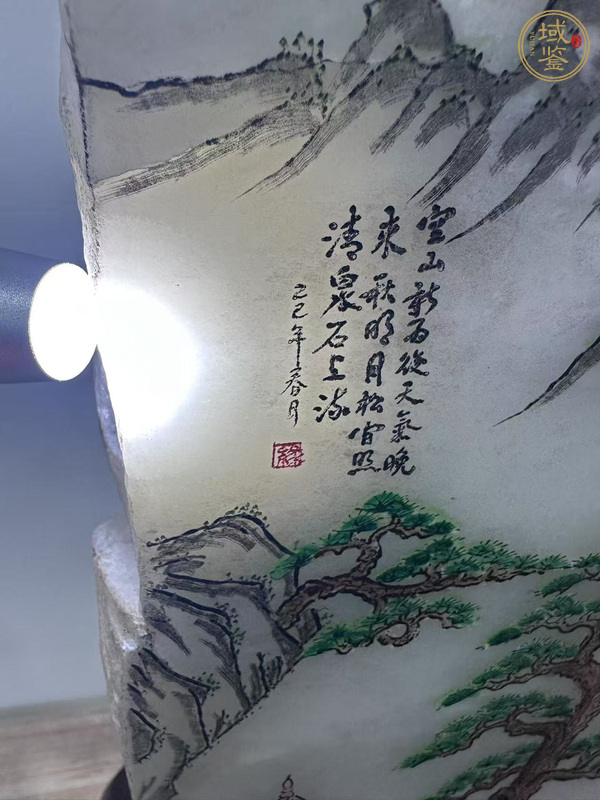 空山新雨後天氣晚
来秋明月松间照
清泉石上流
乙巳年春月
域鉴